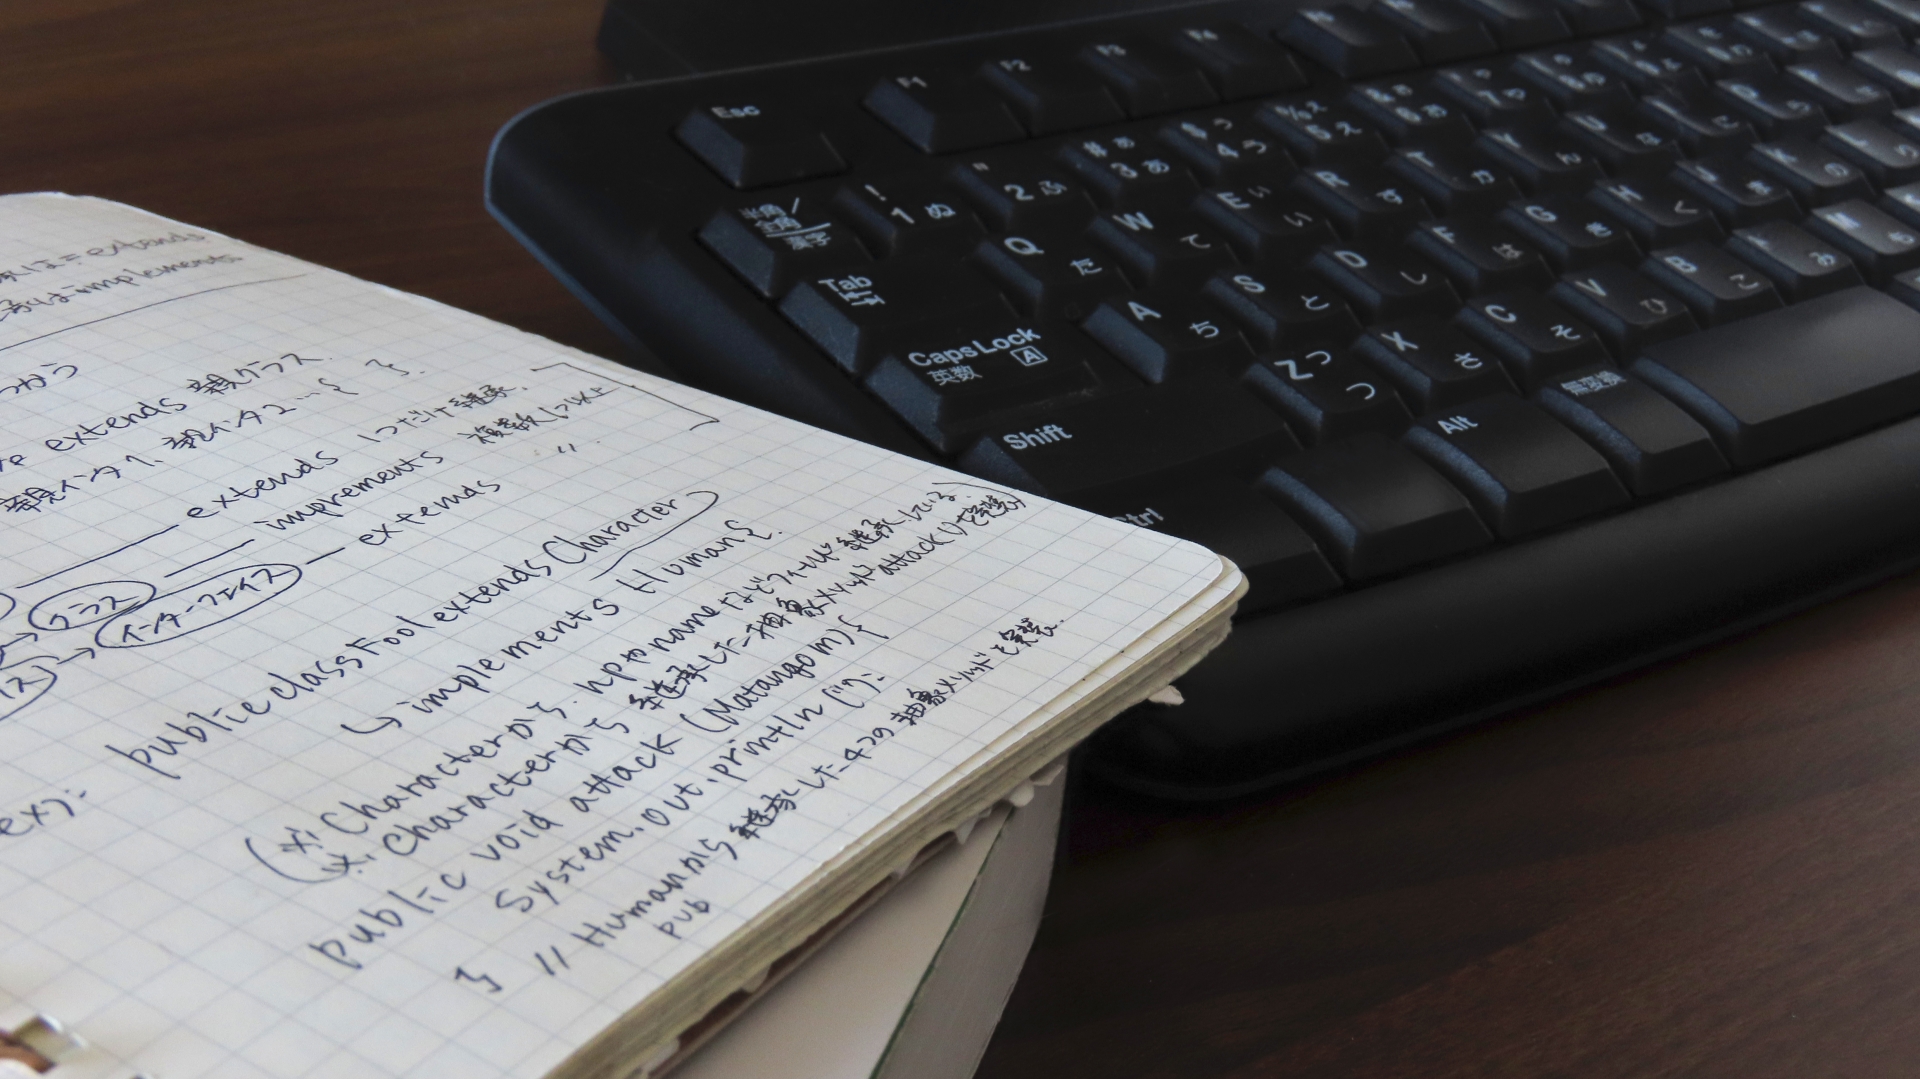 extends
implements
extends 親クラス
extends 1つだけ 継承.
imprements 複数(1つ以上
クラス
extends
インターフェイス
ex):
public class Fool extends Character
↳ implements Human {
(※ Characterから. hpやnameなどフィールド継承している.
※ Characterから 継承した抽象メソッドattack()を実装)
public void attack (Matango m) {
System.out.println ("");
}
// Humanから 継承した4つの抽象メソッドを実装.
pub
Esc
F1
F2
F3
F4
半角/
全角
漢字
! 1 ぬ
" 2 ふ
# ぁ 3 あ
$ ぅ 4 う
% ぇ 5 え
& ぉ 6 お
Tab
Q た
W て
E ぃ い
R す
T か
Y ん
U な
CapsLock
A
英数
A ち
S と
D し
F は
G き
H く
J ま
K の
Shift
Z っ つ
X さ
C そ
V ひ
B こ
み
M も
Ctrl
Alt
無変換